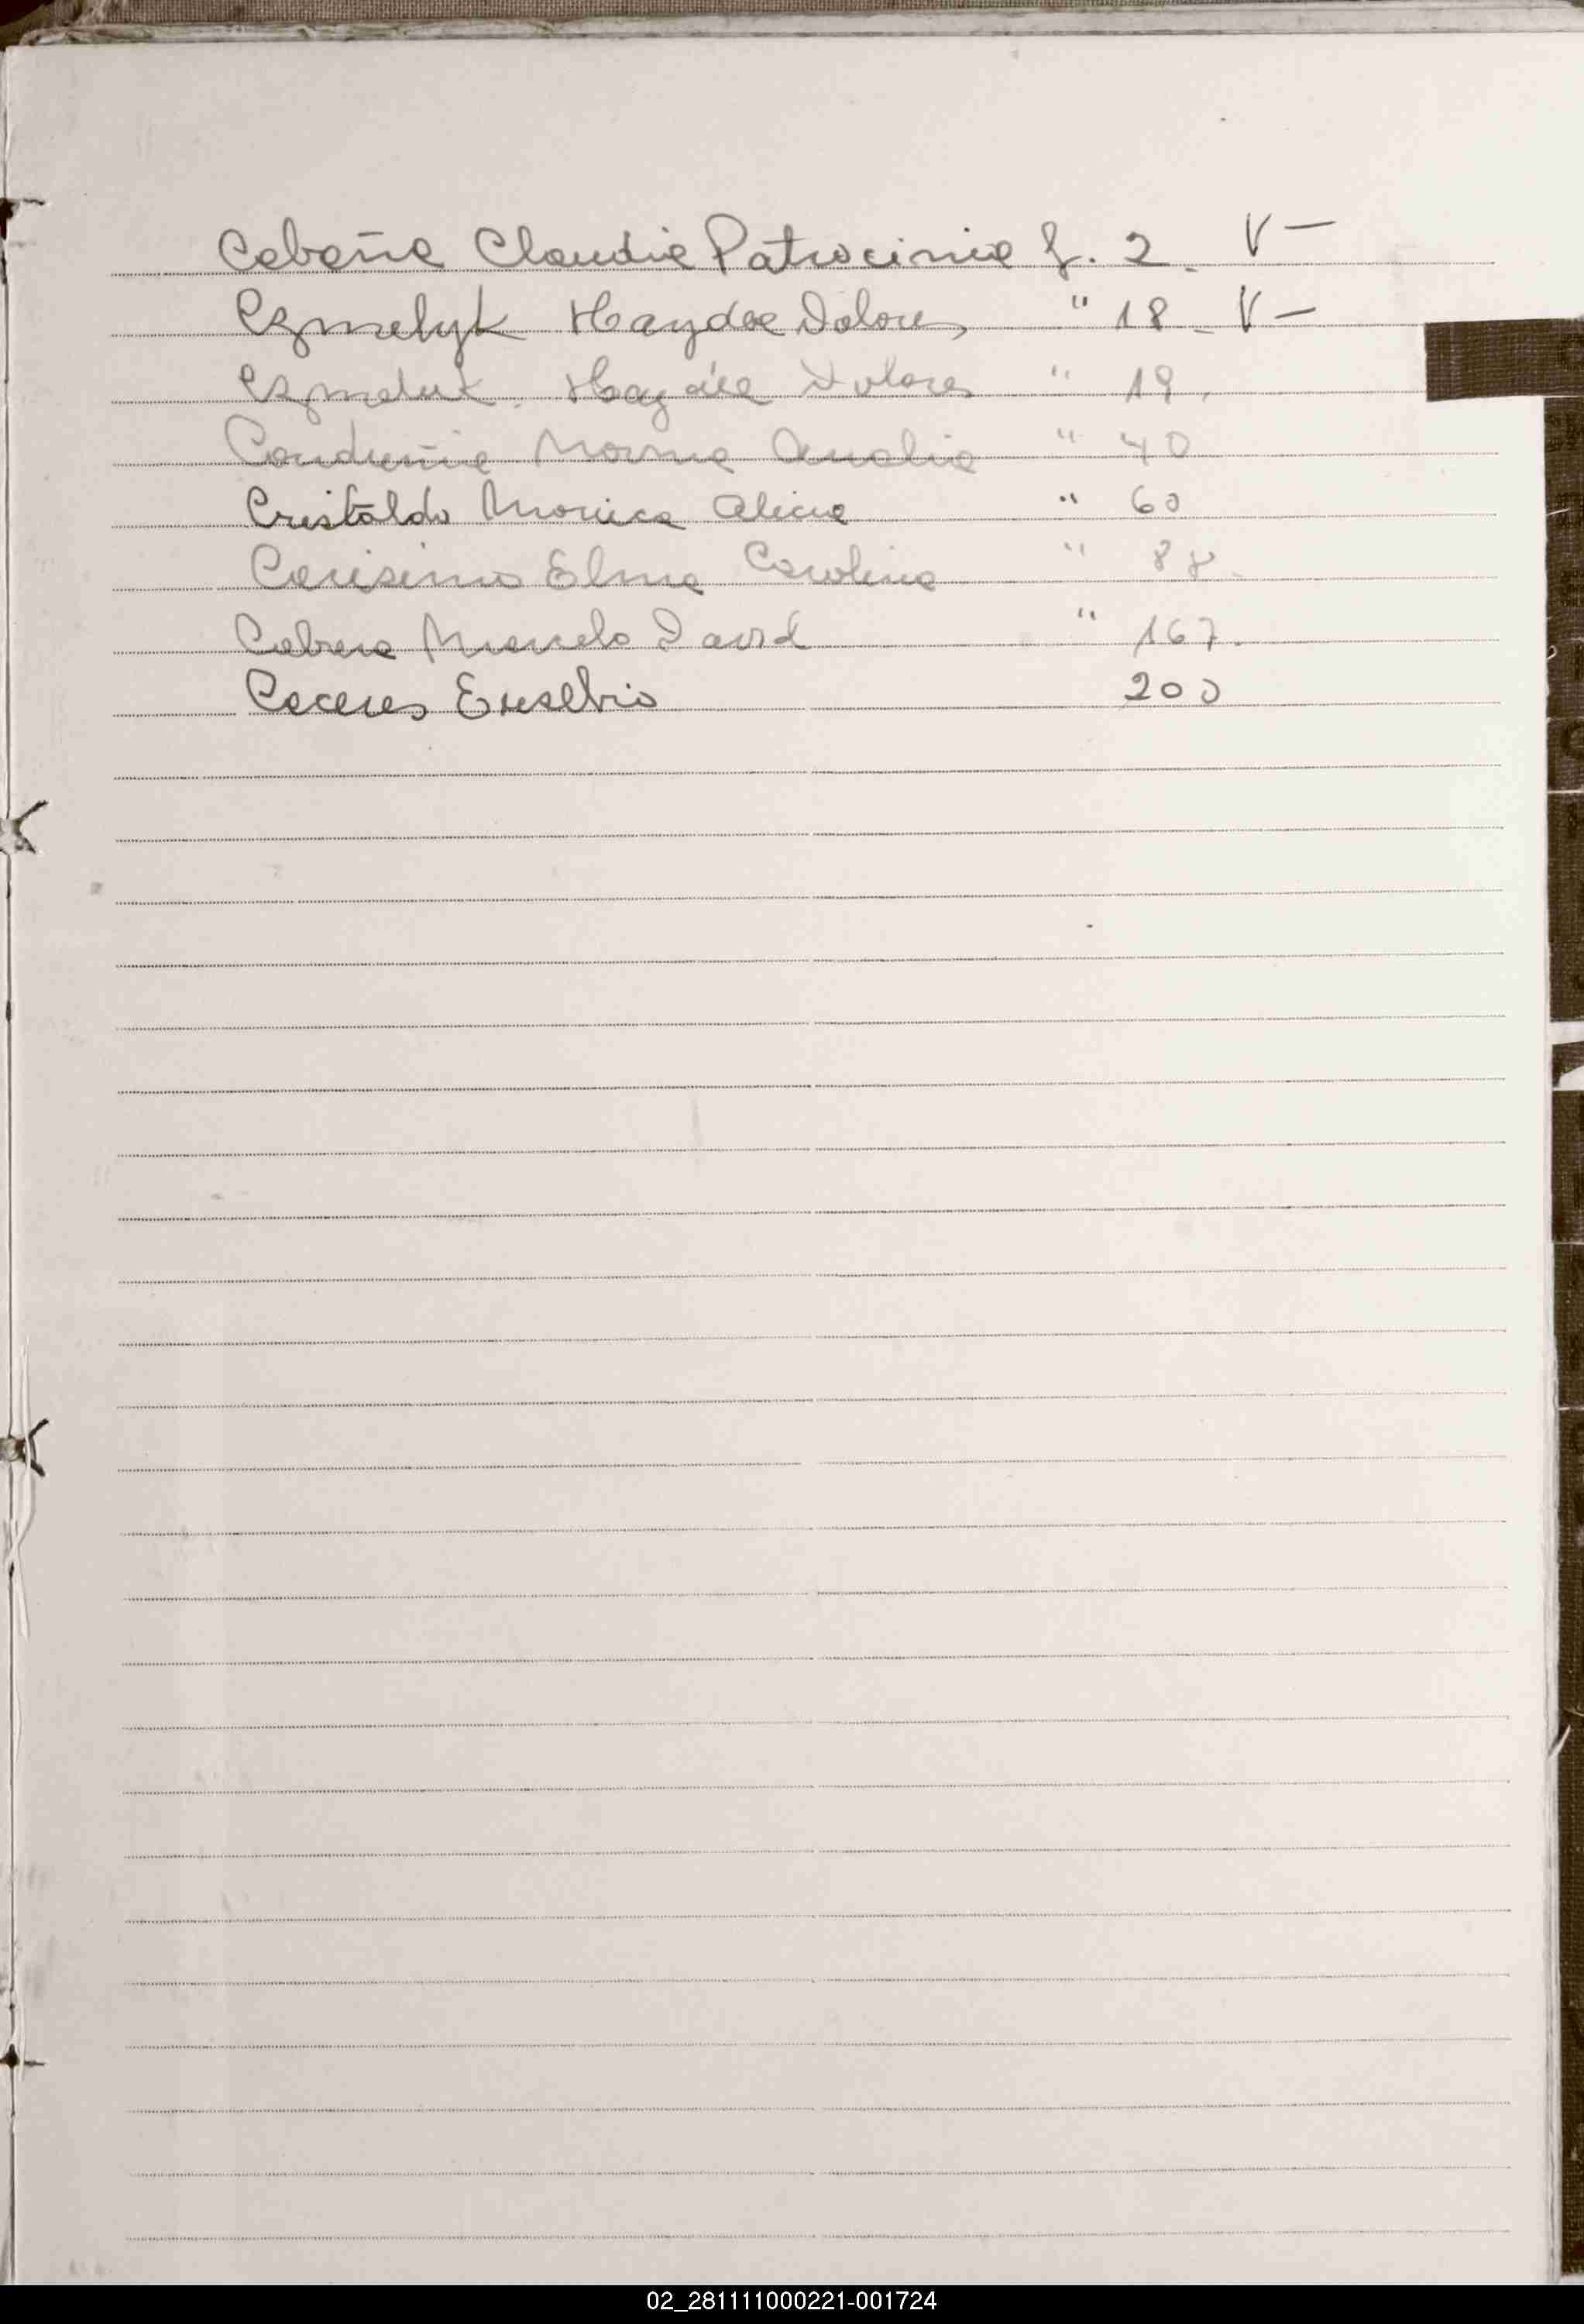 Cabaña Claudia Patrocinia f. 2. V—
Czmelyk Haydee Dolores " 18 - V—
Czmeluk. Haydée Dolores " 19.
Norma Analia " 40
Cristaldo Monica Alicia " 60
Carisimo Elma Carolina " 88.
Cabrera Marcelo David " 167.
Caceres Eusebio 200
02_281111000221-001724